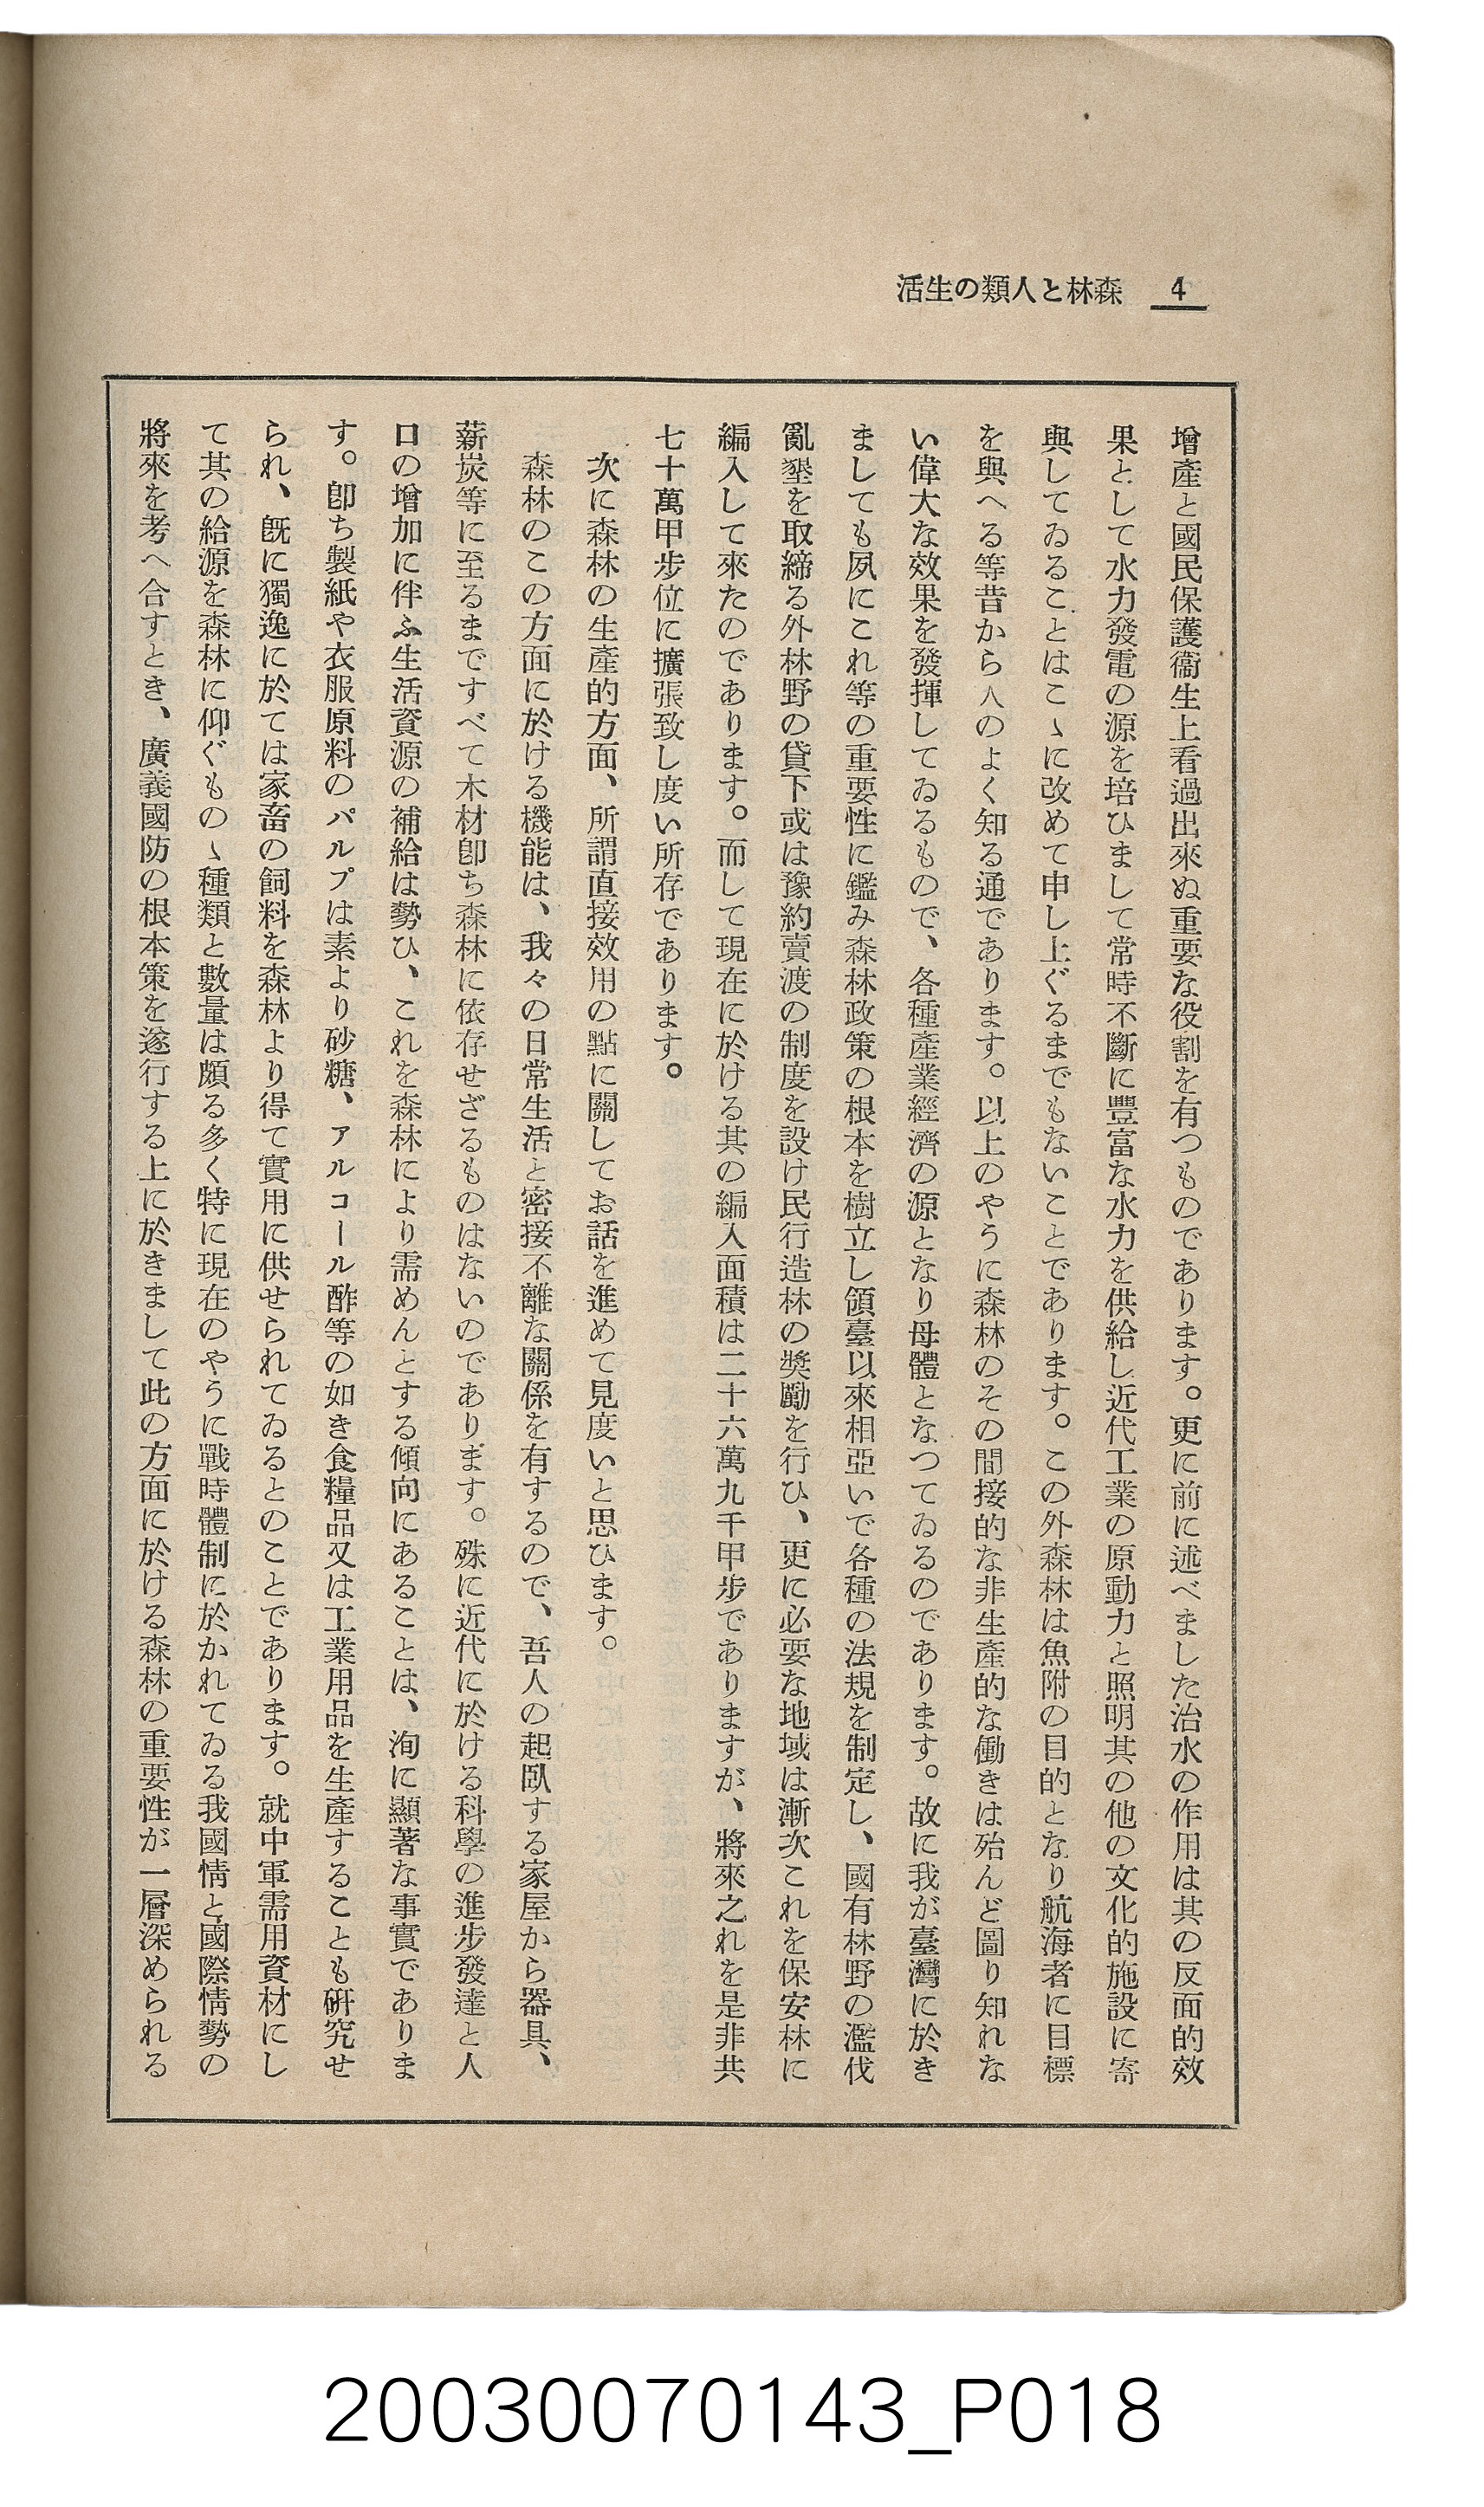 4 森林と人類の生活
增產と國民保護衞生上看過出來ぬ重要な役割を有つものであります。更に前に述べました治水の作用は其の反面的效
果として水力發電の源を培ひまして常時不斷に豐富な水力を供給し近代工業の原動力と照明其の他の文化的施設に寄
與してゐることはこゝに改めて申し上ぐるまでもないことであります。この外森林は魚附の目的となり航海者に目標
を與へる等昔から人のよく知る通であります。以上のやうに森林のその間接的な非生產的な働きは殆んど圖り知れな
い偉大な效果を發揮してゐるもので、各種產業經濟の源となり母體となつてゐるのであります。故に我が臺灣に於き
ましても夙にこれ等の重要性に鑑み森林政策の根本を樹立し領臺以來相亞いで各種の法規を制定し、國有林野の濫伐
亂墾を取締る外林野の貸下或は豫約賣渡の制度を設け民行造林の奬勵を行ひ、更に必要な地域は漸次これを保安林に
編入して來たのであります。而して現在に於ける其の編入面積は二十六萬九千甲步でありますが、將來之れを是非共
七十萬甲步位に擴張致し度い所存であります。
次に森林の生產的方面、所謂直接效用の點に關してお話を進めて見度いと思ひます。
森林のこの方面に於ける機能は、我々の日常生活と密接不離な關係を有するので、吾人の起臥する家屋から器具、
薪炭等に至るまですべて木材卽ち森林に依存せざるものはないのであります。殊に近代に於ける科學の進步發達と人
口の增加に伴ふ生活資源の補給は勢ひ、これを森林により需めんとする傾向にあることは、洵に顯著な事實でありま
す。卽ち製紙や衣服原料のパルプは素より砂糖、アルコール酢等の如き食糧品又は工業用品を生產することも硏究せ
られ、旣に獨逸に於ては家畜の飼料を森林より得て實用に供せられてゐるとのことであります。就中軍需用資材にし
て其の給源を森林に仰ぐものゝ種類と數量は頗る多く特に現在のやうに戰時體制に於かれてゐる我國情と國際情勢の
將來を考へ合すとき、廣義國防の根本策を遂行する上に於きまして此の方面に於ける森林の重要性が一層深められる
20030070143_P018